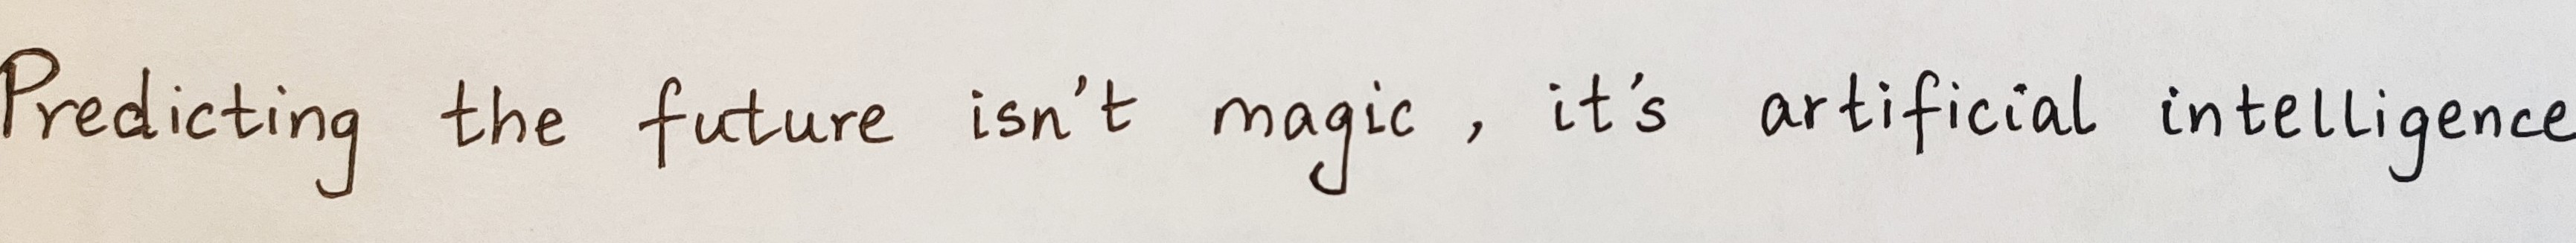 Predicting the future isn't magic, it's artificial intelligence